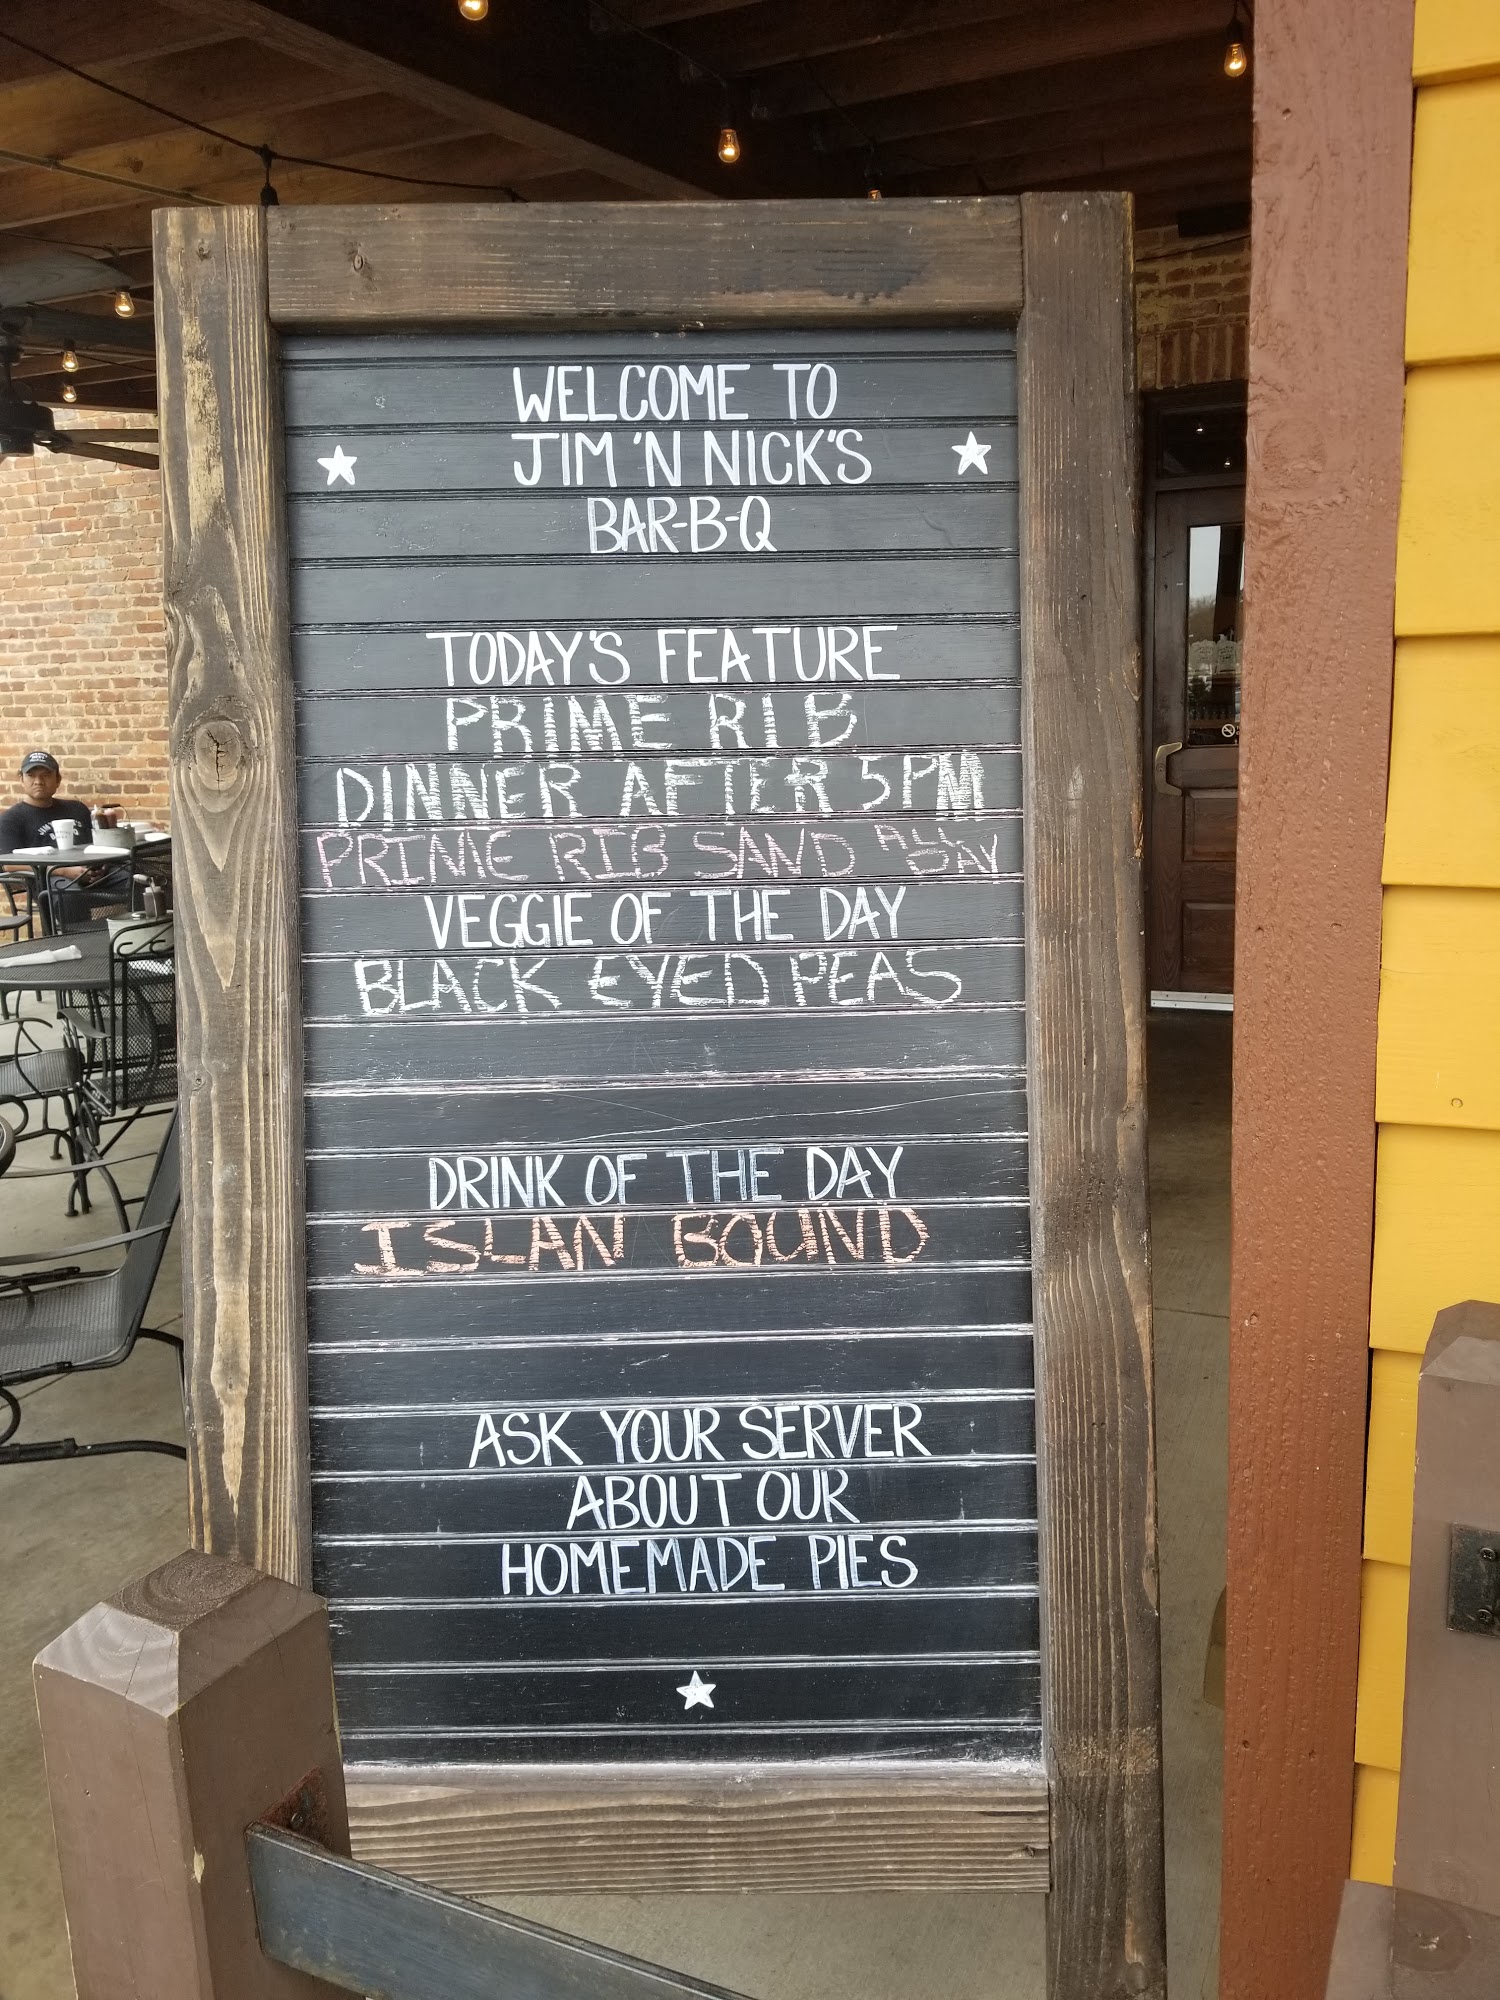 WELCOME TO
JIM 'N NICK'S
BAR-B-Q
TODAY'S FEATURE
PRIME RIB
DINNER AFTER 5PM
PRIME RIB SAND ALL DAY
VEGGIE OF THE DAY
BLACK EYED PEAS
DRINK OF THE DAY
ISLAN BOUND
ASK YOUR SERVER
ABOUT OUR
HOMEMADE PIES